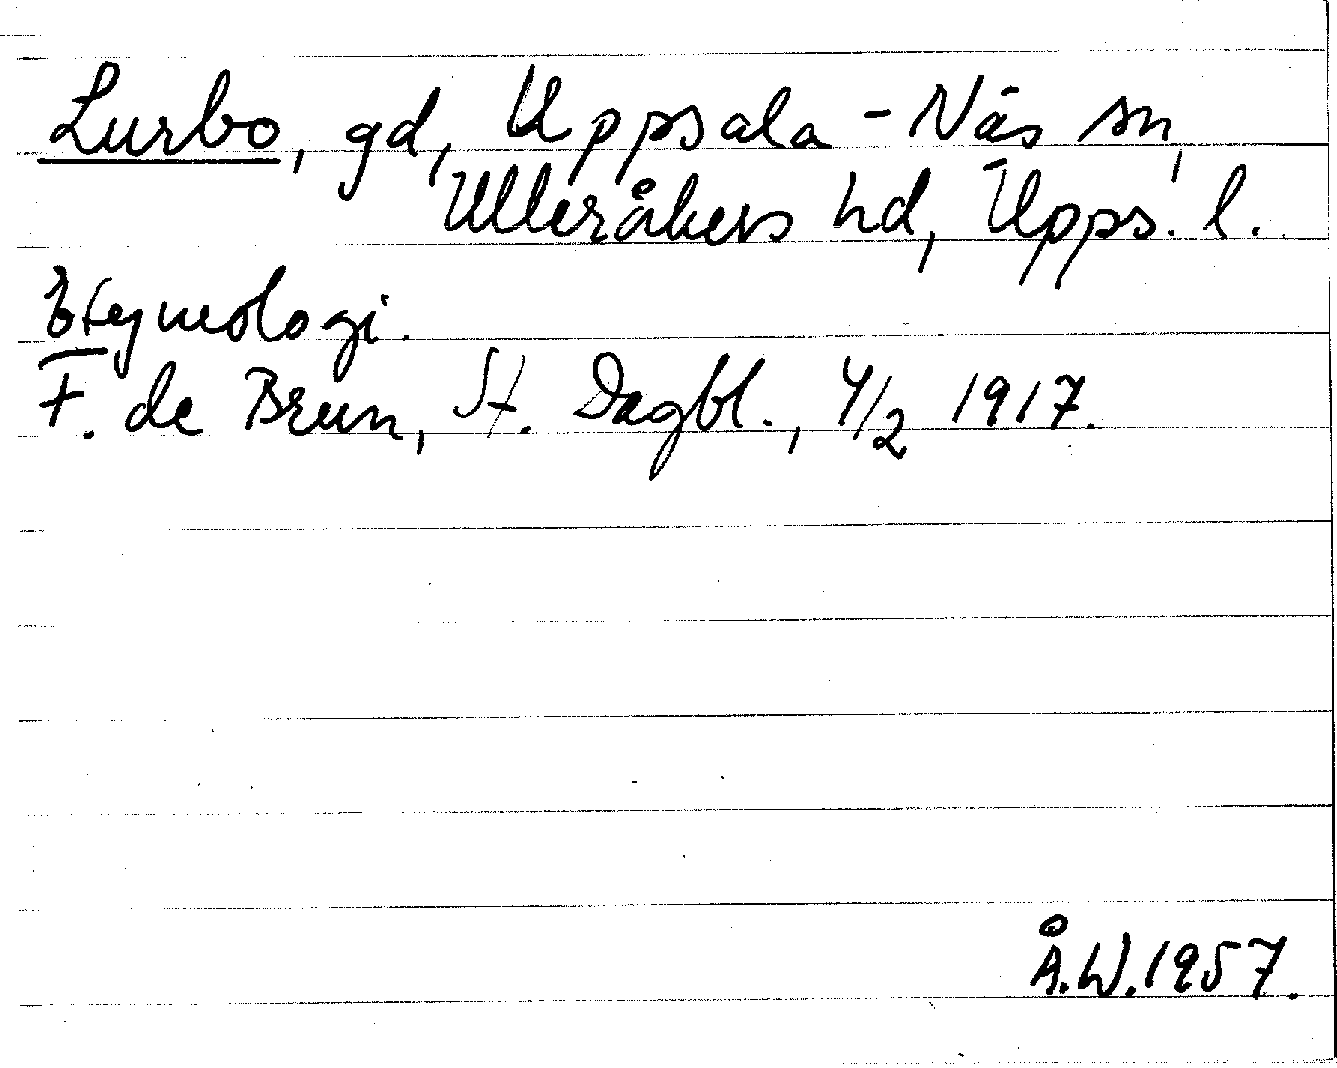 Lurbo, gd, Uppsala-Näs sn,
Ulleråkers hd, Upps. l.
Etymologi.
F. de Brun, St. Dagbl., 4/2 1917.
Å.W.1957.